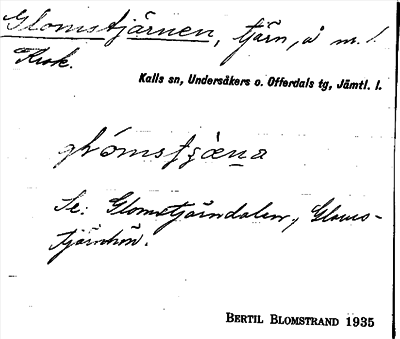 Glomstjärnen, tjärn, å m. l.
Krok.
Kalls sn, Undersåkers o. Offerdals tg, Jämtl. l.
Se: Glomstjärndalen, Gloms-
tjärnhön.
BERTIL BLOMSTRAND 1935